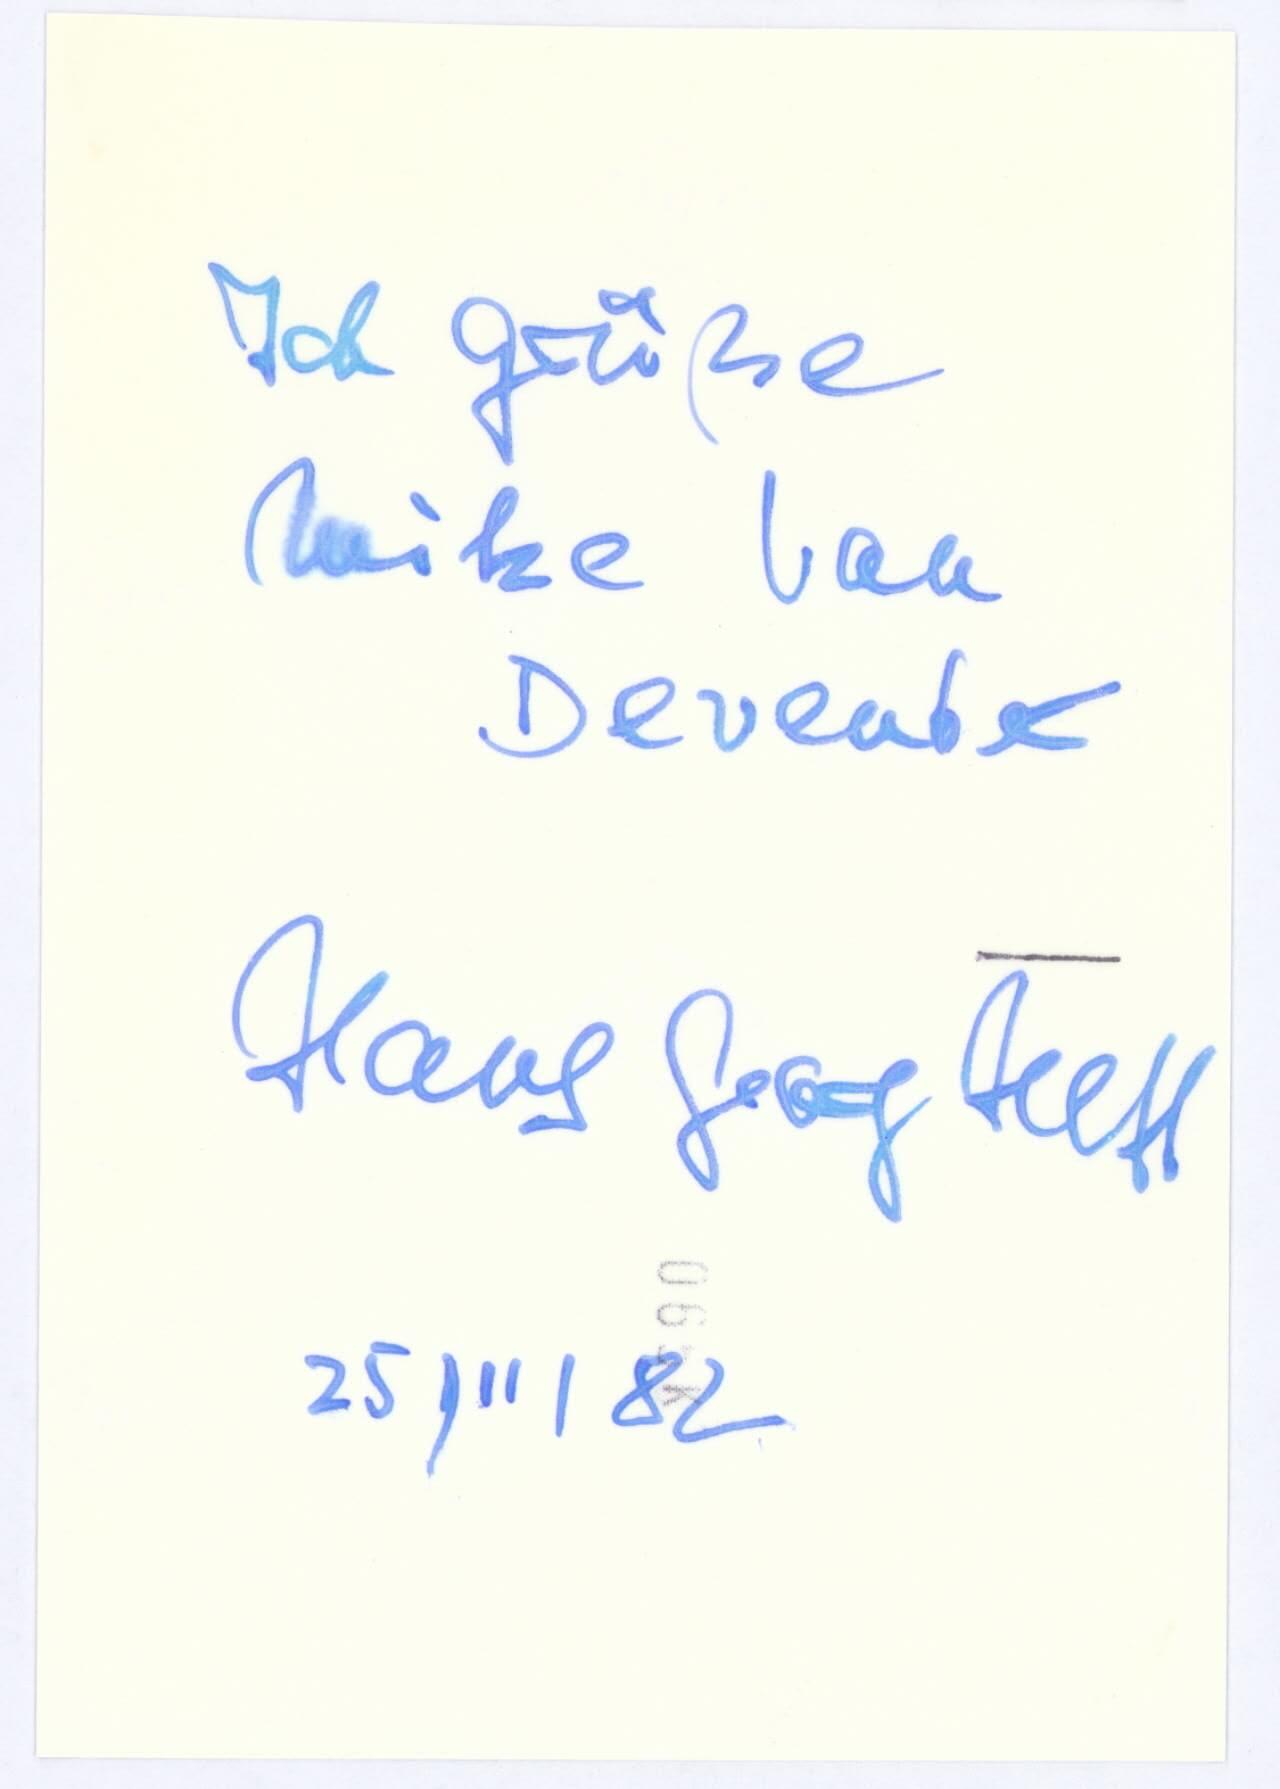 Ich grüße
Mike van
Deventer
Hans Georg
25/III/82